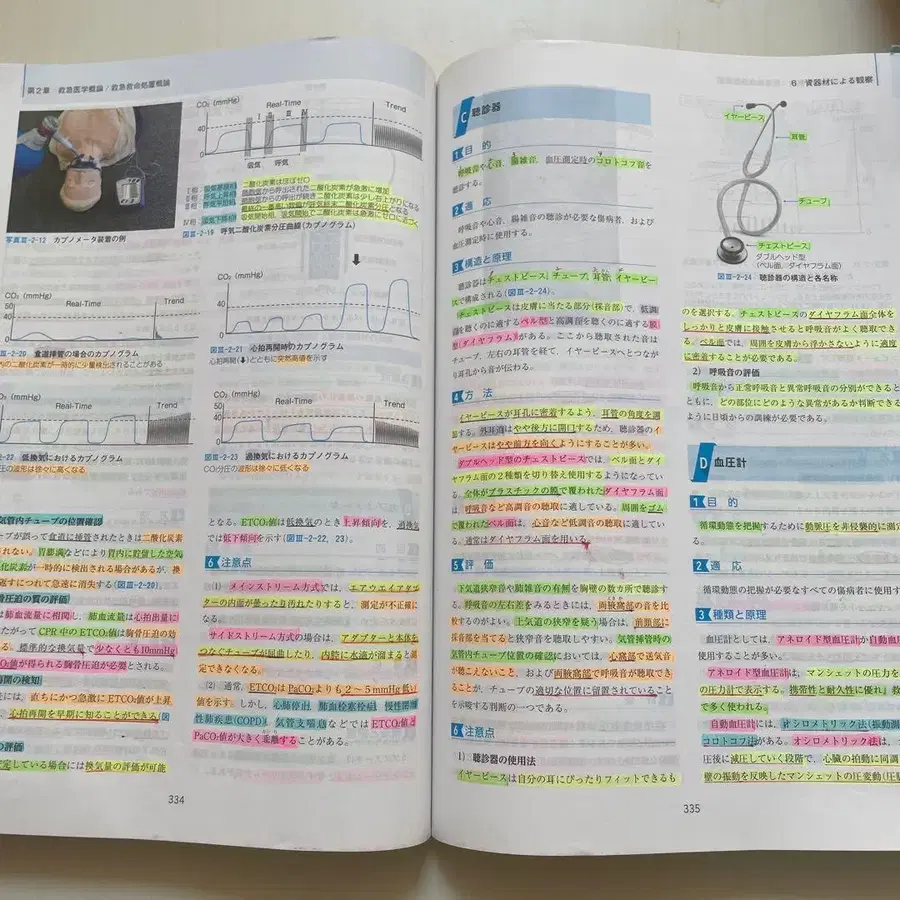 第2章 救急医学概論/救急救命処置概論
写真Ⅲ-2-12 カプノメータ装着の例
CO₂ (mmHg)
Real-Time
Trend
40
0
Ⅰ
Ⅱ
Ⅲ
Ⅳ
吸気
呼気
二酸化炭素はほぼゼロ
図Ⅲ-2-19 呼気二酸化炭素分圧曲線(カプノグラム)
CO₂ (mmHg)
50
40
0
Real-Time
Trend
-20 食道挿管の場合のカプノグラム
の二酸化炭素が一時的に少量検出されることがある
CO₂ (mmHg)
40
0
図Ⅲ-2-21 心拍再開時のカプノグラム
心拍再開(⬇)とともに突然高値を示す
CO₂ (mmHg)
Real-Time
Trend
-22 低換気におけるカプノグラム
圧の波形は徐々に高くなる
CO₂ (mmHg)
50
40
0
Real-Time
Trend
図Ⅲ-2-23 過換気におけるカプノグラム
CO₂分圧の波形は徐々に低くなる
気管内チューブの位置確認
ーブが誤って食道に挿管されたときは二酸化炭素
されない。胃膨満などにより胃内に貯留した空気
化炭素が一時的に検出される場合があるが、換
返すにつれて急速に消失する(図Ⅲ-2-20)。
骨圧迫の質の評価
は肺血流量に相関し、肺血流量は心拍出量に
たがって CPR中のETCO₂値は胸骨圧迫の効
る。標準的な換気量で少なくとも10mmHg
CO₂値が得られる胸骨圧迫が必要とされる。
再開の検知
には、直ちにかつ急激に ETCO₂値が上昇
、心拍再開を早期に知ることができる(図
の評価
定している場合には換気量の評価が可能
となる。ETCO₂値は低換気のとき上昇傾向を、過換気
では低下傾向を示す(図Ⅲ-2-22, 23)。
6 注意点
(1) メインストリーム方式では、エアウエイアダプ
ターの内面が曇ったり汚れたりすると、測定が不正確に
なる。
サイドストリーム方式の場合は、アダプターと本体を
つなぐチューブが屈曲したり、内腔に水滴が溜まると測
定できなくなる。
(2) 通常、ETCO₂はPaCO₂よりも2〜5mmHg低い
値を示す。しかし、心肺停止、肺血栓塞栓症、慢性閉塞
性肺疾患(COPD)、気管支喘息などでは ETCO₂値と
PaCO₂値が大きく乖離することがある。
334
6 資器材による観察
C 聴診器
1 目 的
呼吸音や心音、腸雑音、血圧測定時のコロトコフ音を
聴診する。
2 適 応
呼吸音や心音、腸雑音の聴診が必要な傷病者、および
血圧測定時に使用する。
3 構造と原理
聴診器はチェストピース、チューブ、耳管、イヤーピー
スで構成される(図Ⅲ-2-24)。
チェストピースは皮膚に当たる部分(採音部)で、低調
音を聴くのに適するベル型と高調音を聴くのに適する膜
型(ダイヤフラム)がある。ここから採取された音は
チューブ、左右の耳管を経て、イヤーピースへとつなが
り耳孔から音が伝わる。
4 方 法
イヤーピースが耳孔に密着するよう、耳管の角度を調
節する。外耳道はやや後方に開口するため、聴診器のイ
ヤーピースはやや前方を向くようにすることが多い。
ダブルヘッド型のチェストピースでは、ベル面とダイ
ヤフラム面の2種類を切り替え使用するようになってい
る。全体がプラスチックの膜で覆われたダイヤフラム面
は、呼吸音など高調音の聴取に適している。周囲をゴム
で覆われたベル面は、心音など低調音の聴取に適してい
る。通常はダイヤフラム面を用いる。
5 評 価
上気道狭窄音や肺雑音の有無を胸壁の数か所で聴診す
る。呼吸音の左右差をみるときには、両腋窩部の音を比
較するのがよい。上気道の狭窄を疑う場合は、前頸部に
採音部を当てると狭窄音を聴取しやすい。気管挿管時の
気管内チューブ位置の確認においては、心窩部で送気音
が聴こえないこと、および両腋窩部で呼吸音が聴取でき
ることが、チューブの適切な位置に留置されていること
を示唆する判断の一つである。
6 注意点
1) 聴診器の使用法
イヤーピースは自分の耳にぴったりフィットできるも
イヤーピース
耳管
チューブ
チェストピース
ダブルヘッド型
(ベル面、ダイヤフラム面)
図Ⅲ-2-24 聴診器の構造と各名称
のを選択する。チェストピースのダイヤフラム面全体を
しっかりと皮膚に接触させると呼吸音がよく聴取でき
る。ベル面では、周囲を皮膚から浮かさないように適度
に密着することが必要である。
2) 呼吸音の評価
呼吸音から正常呼吸音と異常呼吸音の分別ができると
ともに、どの部位にどのような異常があるか判断できる
ように日頃からの訓練が必要である。
D 血圧計
1 目 的
循環動態を把握するために動脈圧を非侵襲的に測定
2 適 応
循環動態の把握が必要なすべての傷病者に使用す
3 種類と原理
血圧計としては、アネロイド型血圧計か自動血
使用することが多い。
アネロイド型血圧計は、マンシェットの圧力を
の圧力計で表示する。携帯性と耐久性に優れ、救
で多く使われる。
自動血圧計には、オシロメトリック法(振動法
コロトコフ法がある。オシロメトリック法は、カ
圧後に減圧していく段階で、心臓の拍動に同調
壁の振動を反映したマンシェットの圧変動(圧
335